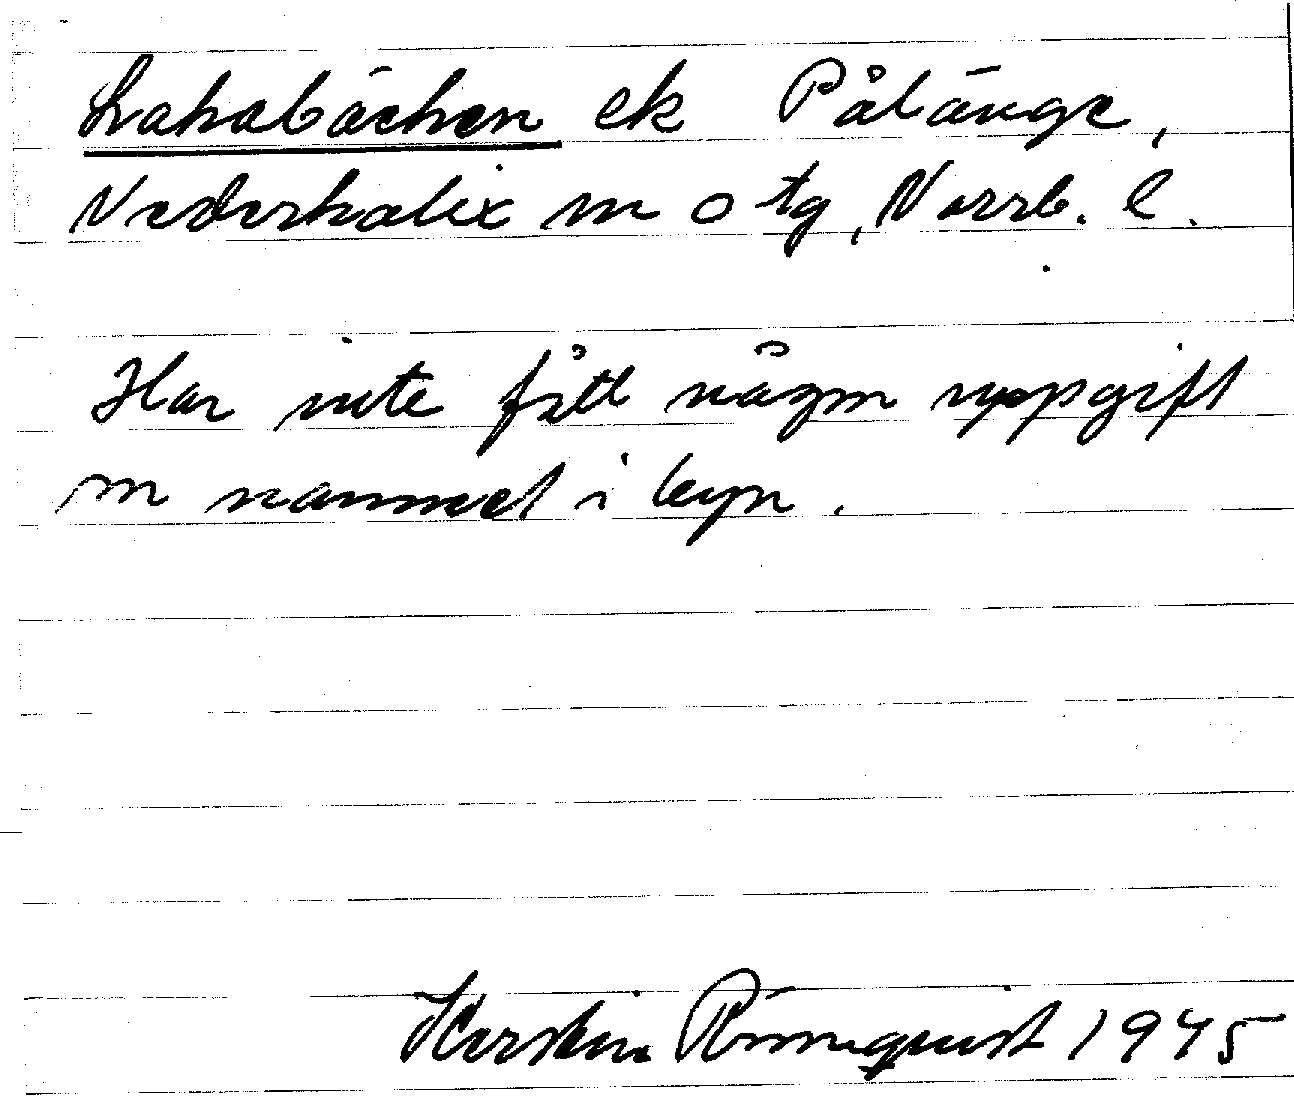 Lakabäcken ek Pålänge,
Nederkalix m o tg, Norrb. l.
Har inte fått någon uppgift
om namnet i byn.
Kerstin Rönnquist 1945